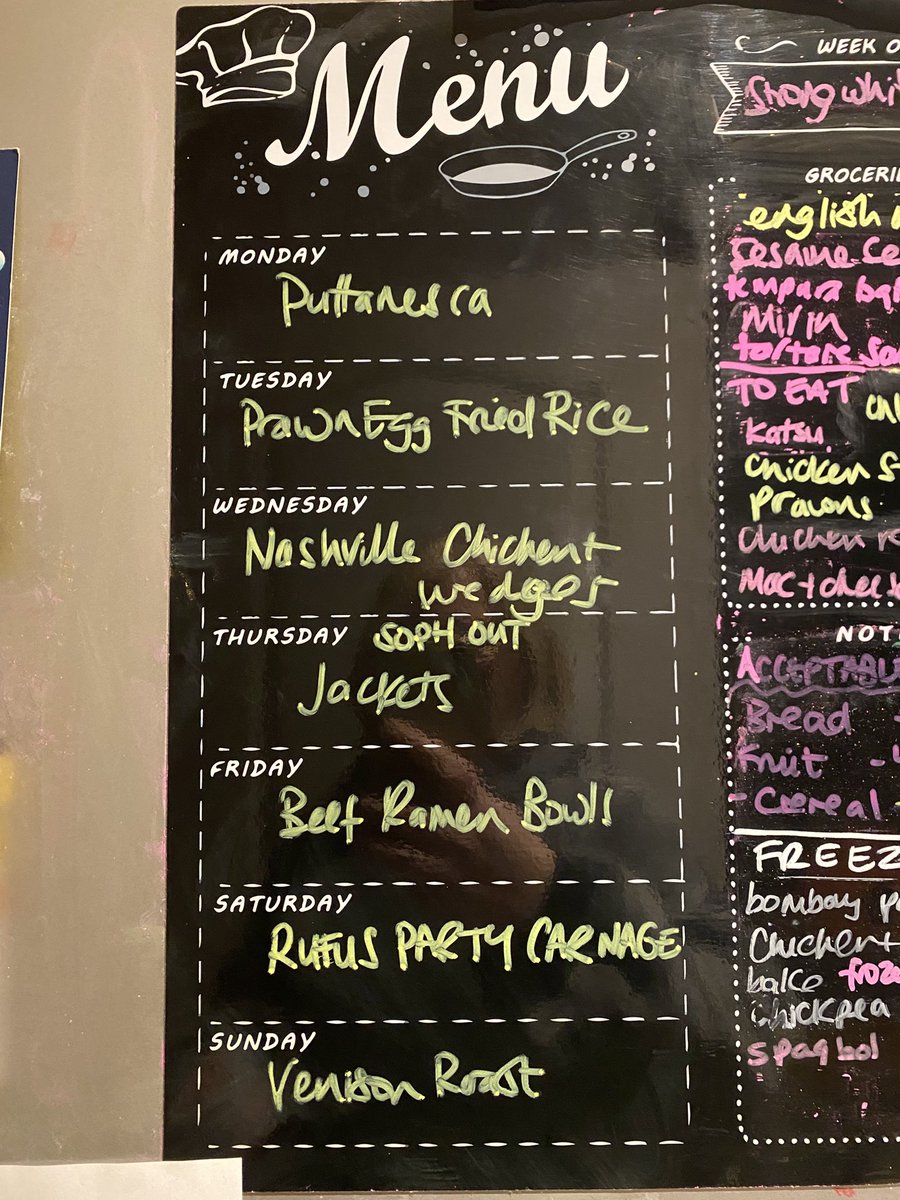 Menu
MONDAY
Puttanesca
TUESDAY
Prawn Egg Fried Rice
WEDNESDAY
Nashville Chicken +
wedges
THURSDAY SOPH OUT
Jackets
FRIDAY
Beef Ramen Bowls
SATURDAY
RUFUS PARTY CARNAGE
SUNDAY
Venison Roast
WEEK O
Strong whi
GROCERI
english
Sesame
Mirin
TO EAT
Katsu
Chicken S
Prawns
Chicken
Mac + chee
NOT
ACCEPTABLE
Bread
Fruit -
- Cereal
FREEZ
bombay
Chicken +
bake froze
Chickpea
spag bol